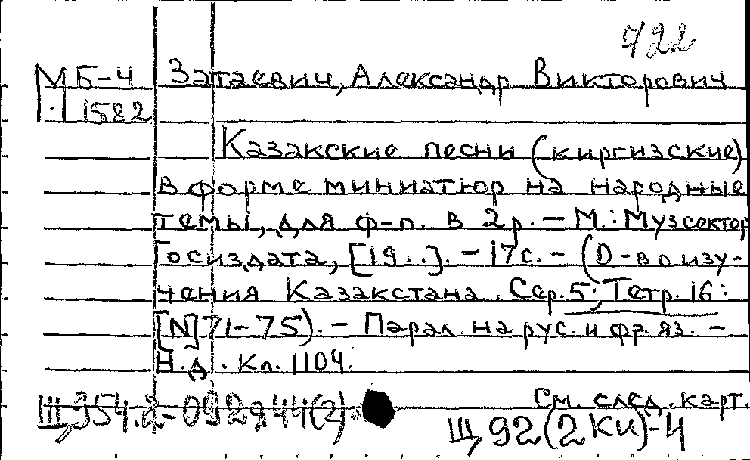 722
МБ-4 Затаевич, Александр Викторович
М.1582
Казакские песни (киргизские)
в форме миниатюр на народные
темы, для ф-п. в 2 р. – М.: Музсектор
Госиздата, [19..]. – 17 с. – (О-во изу-
чения Казакстана. Сер. 5; Тетр. 16:
[N] 71-75). – Парал. на рус. и фр. яз. –
Н.д. Кл. 1104.
См. след. карт.
Щ 92(2Ки)-4